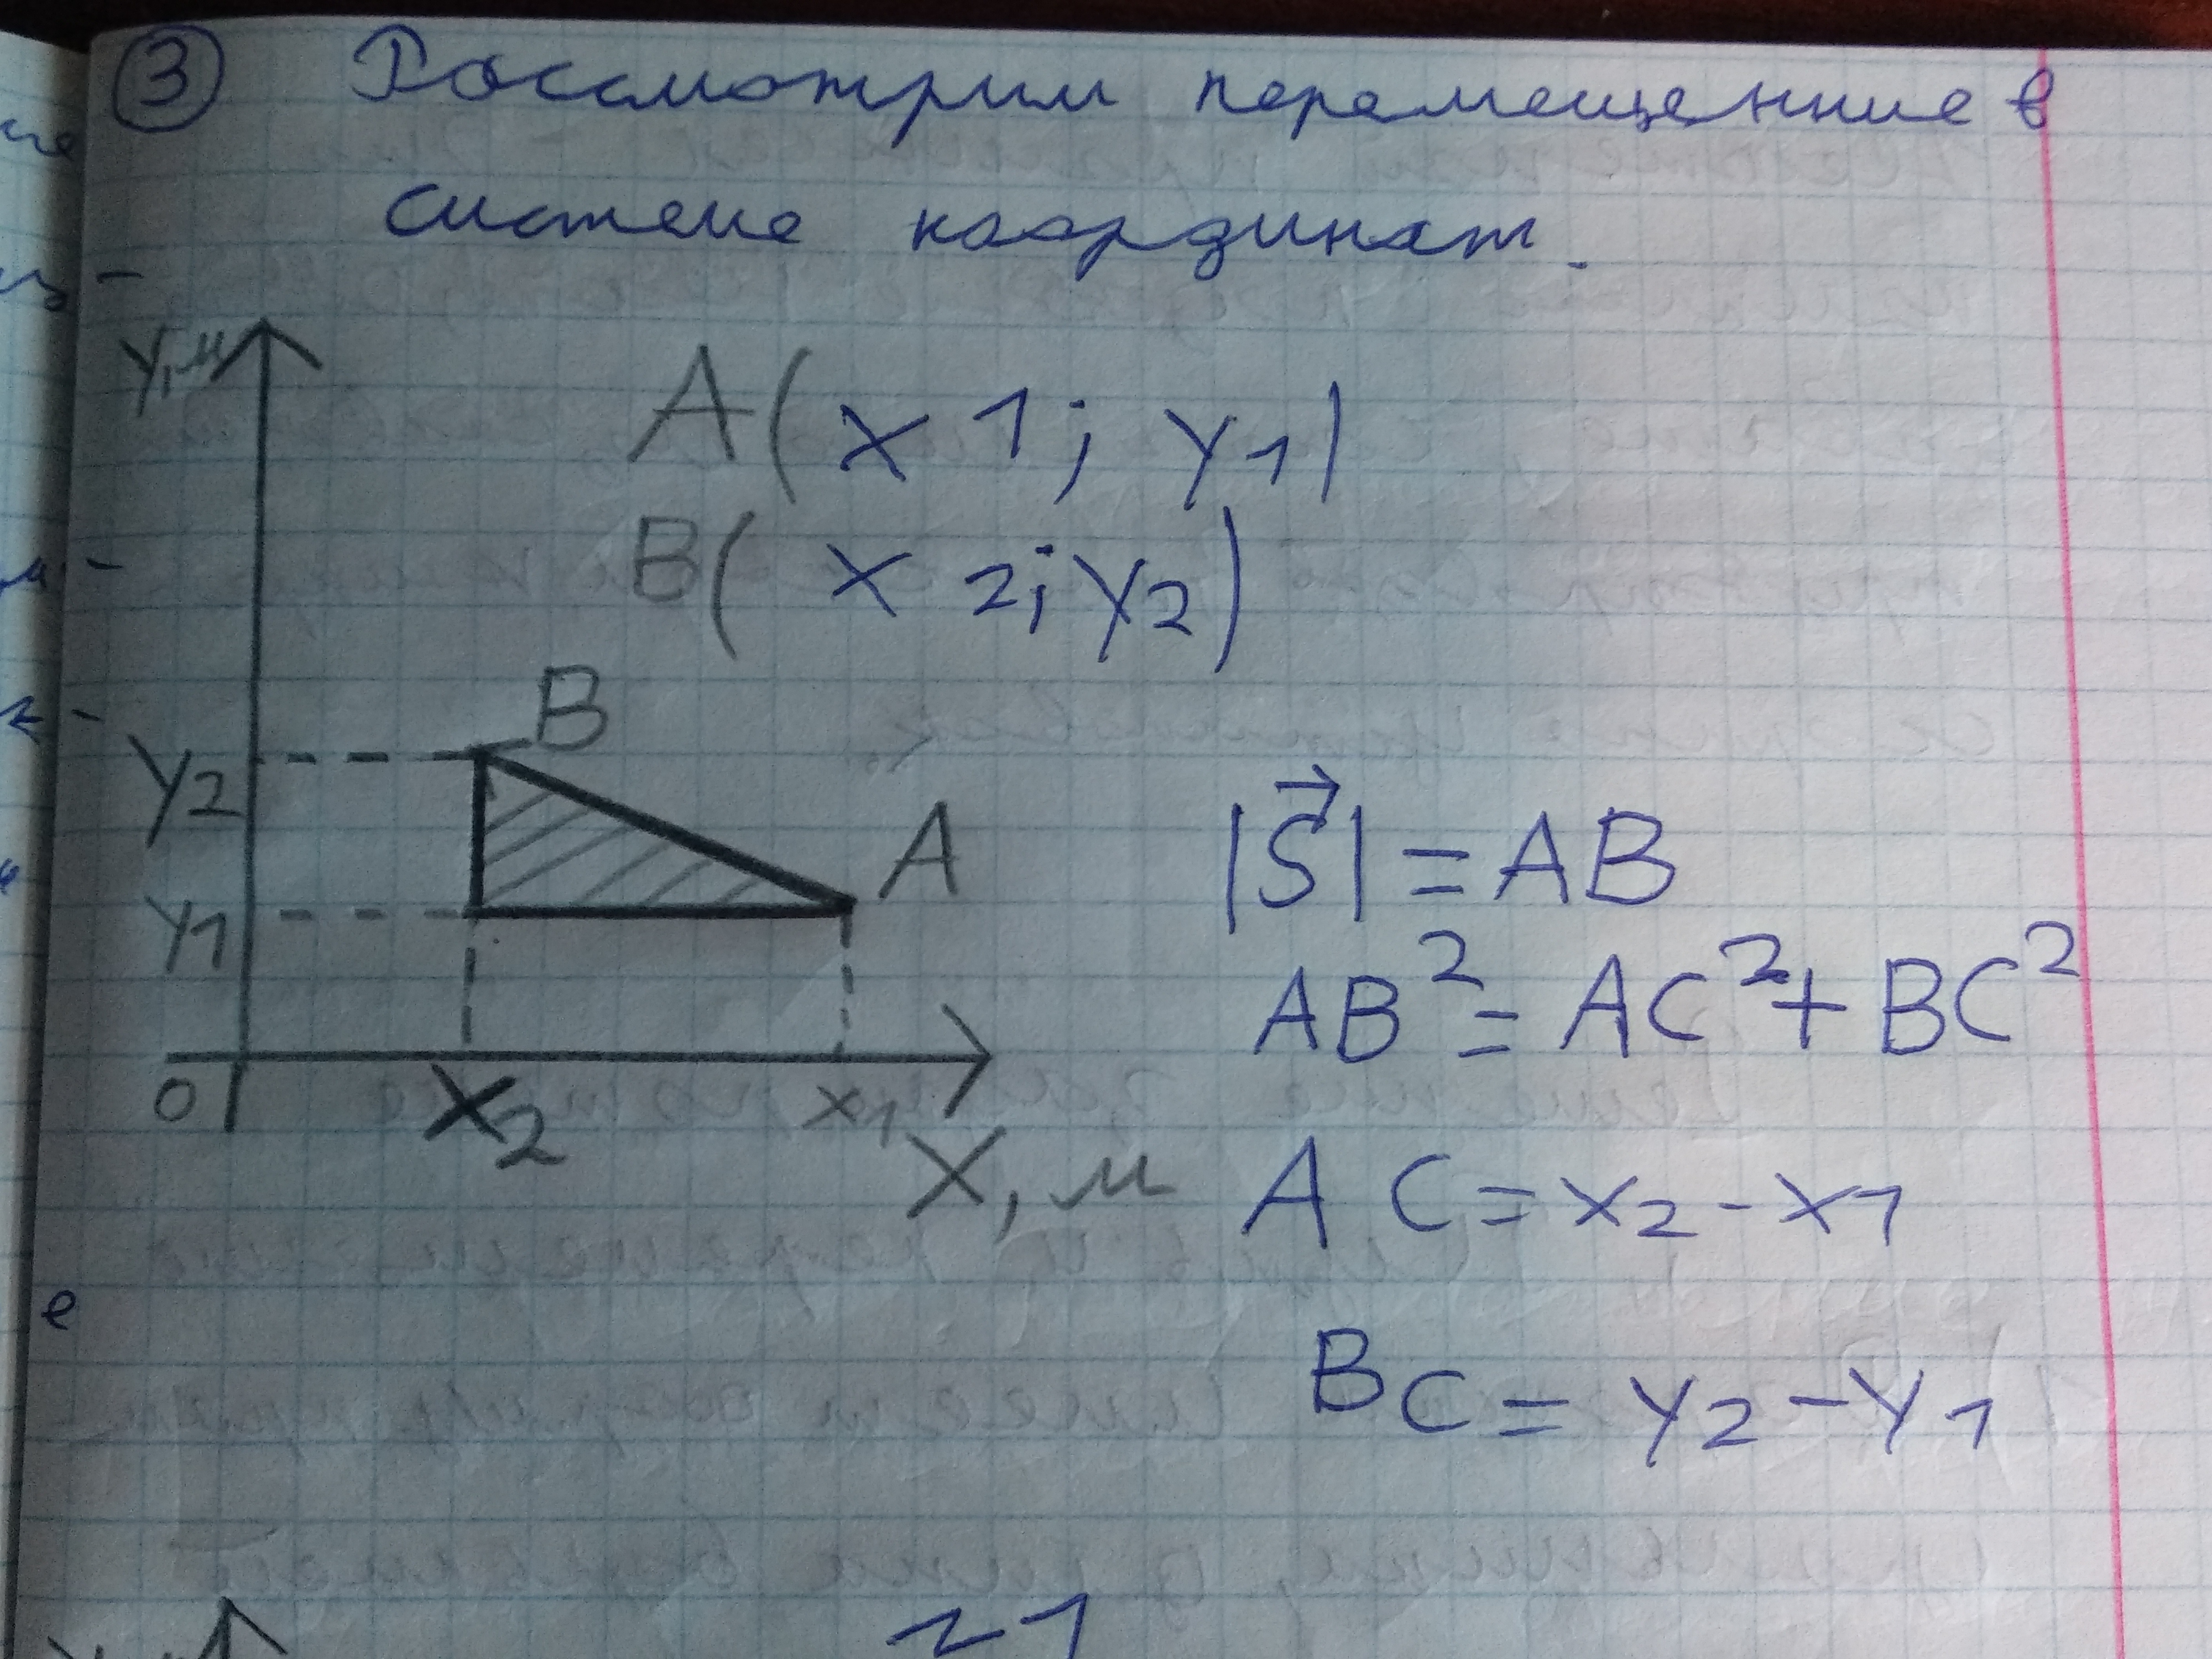 ③ Рассмотрим перемещение в
системе координат.
y,м
A(x1; y1)
B(x2; y2)
B
y2
A
y1
|S⃗| = AB
AB² = AC² + BC²
0
x2
x1
X, м
AC = x2 - x1
BC = y2 - y1
е